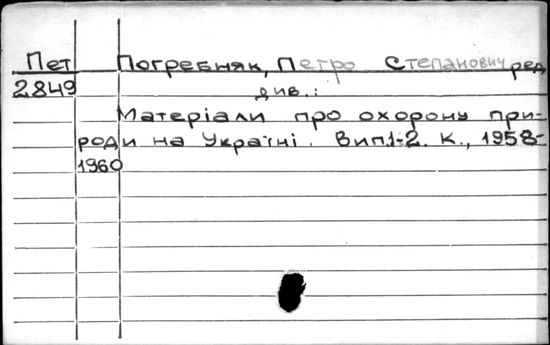 Пет Погребняк, Петро Степанович ред
2849 див.:
Матеріали про охорону при-
роди на Україні. Вип1-2. К., 1958-
1960